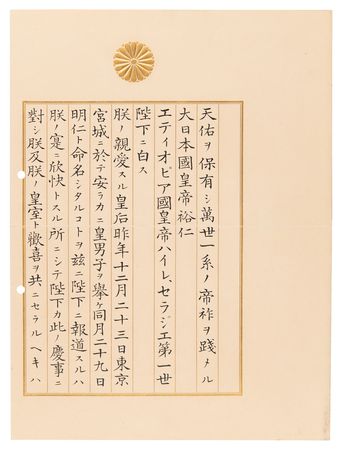 天佑ヲ保有シ萬世一系ノ帝祚ヲ踐メル
大日本國皇帝裕仁
エティオピア國皇帝ハイレ、セラジエ第一世
陛下ニ白ス
朕ノ親愛スル皇后昨年十二月二十三日東京
宮城ニ於テ安ラカニ皇男子ヲ擧ケ同月二十九日
明仁ト命名シタルコトヲ茲ニ陛下ニ報道スルハ
朕ノ寔ニ欣快トスル所ニシテ陛下カ此ノ慶事ニ
對シ朕及朕ノ皇室ト歡喜ヲ共ニセラルヘキハ